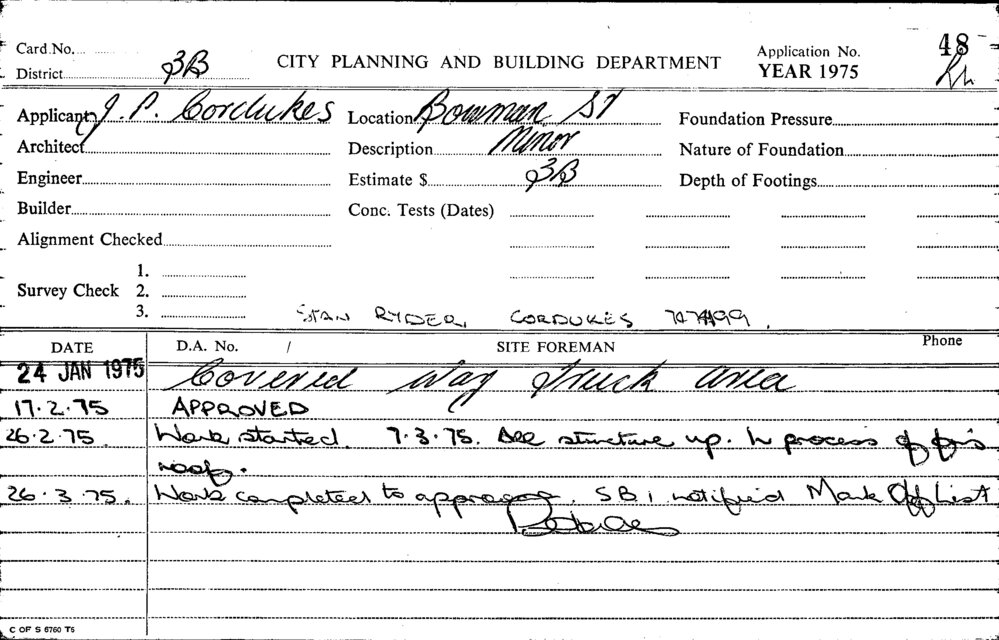 Card No.
District 3B
CITY PLANNING AND BUILDING DEPARTMENT
Application No. 48
YEAR 1975
Applicant J. P. Cordukes
Location Bowman St
Foundation Pressure
Architect
Description Minor
Nature of Foundation
Engineer
Estimate $ 3B
Depth of Footings
Builder
Conc. Tests (Dates)
Alignment Checked
Survey Check
1.
2.
3.
STAN RYDER, CORDUKES
DATE
D.A. No. /
SITE FOREMAN
Phone
24 JAN 1975 Covered way truck area
17.2.75 APPROVED
26.2.75. Work started. 7.3.75. All structure up. In process of
roof.
26.3.75. Work completed to SBI notified Mark Off List
C OF S 6760 T5